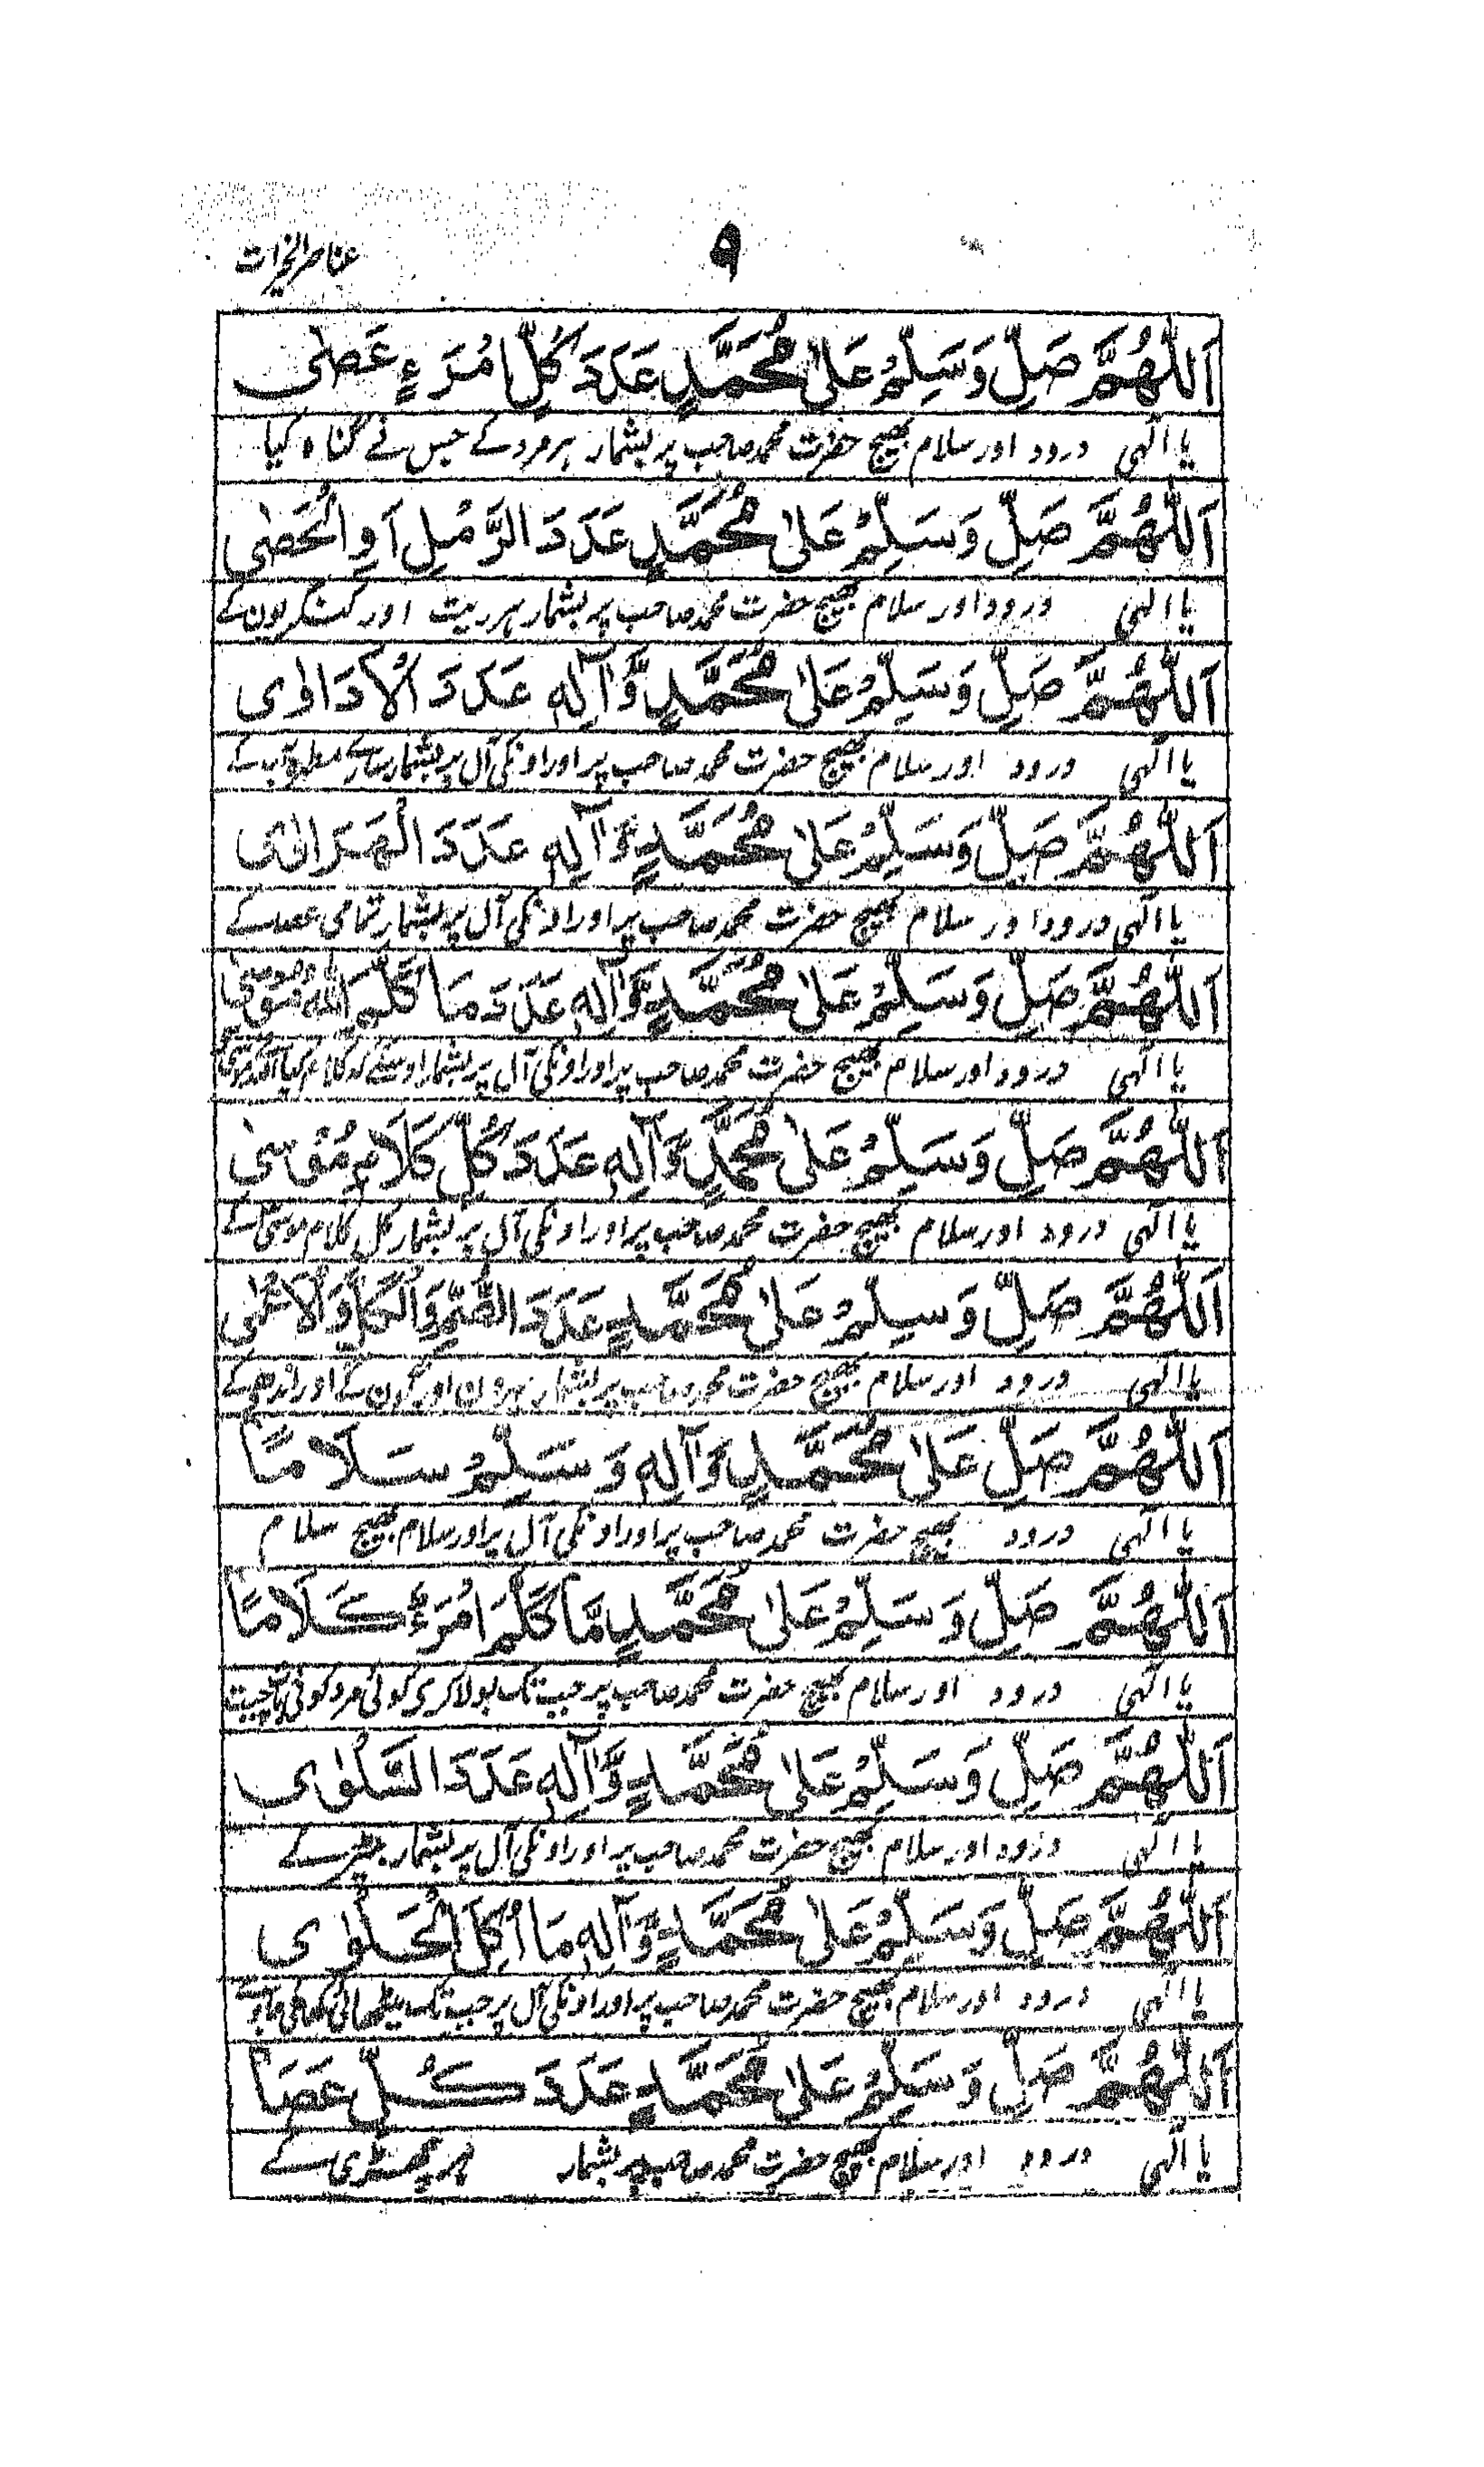 عناصر الخیرات
۹
اَللّٰهُمَّ صَلِّ وَسَلِّمْ عَلٰى مُحَمَّدٍ عَدَدَ كُلِّ امْرَءٍ عَصٰى
یا الٰہی درود اور سلام بھیج حضرت محمد صاحب پر بشمار ہر مرد کے جس نے گناہ کیا
اَللّٰهُمَّ صَلِّ وَسَلِّمْ عَلٰى مُحَمَّدٍ عَدَدَ الرَّمْلِ اَوِ الْحَصٰى
یا الٰہی درود اور سلام بھیج حضرت محمد صاحب پر بشمار ہر ریت اور کنکریون کے
اَللّٰهُمَّ صَلِّ وَسَلِّمْ عَلٰى مُحَمَّدٍ وَّاٰلِهٖ عَدَدَ الْاَدَاوٰى
یا الٰہی درود اور سلام بھیج حضرت محمد صاحب پر اور اونکی آل پر بشمار سارے کے
اَللّٰهُمَّ صَلِّ وَسَلِّمْ عَلٰى مُحَمَّدٍ وَّاٰلِهٖ عَدَدَ الْهَرَاوٰى
یا الٰہی درود اور سلام بھیج حضرت محمد صاحب پر اور اونکی آل پر بشمار تمامی عصا کے
اَللّٰهُمَّ صَلِّ وَسَلِّمْ عَلٰى مُحَمَّدٍ وَّاٰلِهٖ عَدَدَ مَا كَلَّمَ اللّٰهُ مُوْسٰى
یا الٰہی درود اور سلام بھیج حضرت محمد صاحب پر اور اونکی آل پر بشمار اوسکے کہ کلام کیا
اَللّٰهُمَّ صَلِّ وَسَلِّمْ عَلٰى مُحَمَّدٍ وَّاٰلِهٖ عَدَدَ كُلِّ كَلَامِ مُوْسٰى
یا الٰہی درود اور سلام بھیج حضرت محمد صاحب پر اور اونکی آل پر بشمار کل کلام موسیٰ کے
اَللّٰهُمَّ صَلِّ وَسَلِّمْ عَلٰى مُحَمَّدٍ عَدَدَ الصُّمِّ وَالْبُكْمِ وَالْاَعْمٰى
یا الٰہی درود اور سلام بھیج حضرت محمد صاحب پر بشمار بہرون اور گونگون کے اور اندھے کے
اَللّٰهُمَّ صَلِّ عَلٰى مُحَمَّدٍ وَّاٰلِهٖ وَسَلِّمْ سَلَامًا
یا الٰہی درود بھیج حضرت محمد صاحب پر اور اونکی آل پر اور سلام بھیج سلام
اَللّٰهُمَّ صَلِّ وَسَلِّمْ عَلٰى مُحَمَّدٍ مَّا كَلَّمَ امْرَءٌ كَلَامًا
یا الٰہی درود اور سلام بھیج حضرت محمد صاحب پر جب تک بولا کری کوئی مرد کوئی بات چیت
اَللّٰهُمَّ صَلِّ وَسَلِّمْ عَلٰى مُحَمَّدٍ وَّاٰلِهٖ عَدَدَ السَّلْوٰى
یا الٰہی درود اور سلام بھیج حضرت محمد صاحب پر اور اونکی آل پر بشمار بٹیر کے
اَللّٰهُمَّ صَلِّ وَسَلِّمْ عَلٰى مُحَمَّدٍ وَّاٰلِهٖ مَا اُكِلَ الْحَلْوٰى
یا الٰہی درود اور سلام بھیج حضرت محمد صاحب پر اور اونکی آل پر جب تک میٹھائی کھائی جاوے
اَللّٰهُمَّ صَلِّ وَسَلِّمْ عَلٰى مُحَمَّدٍ عَدَدَ كُلِّ عَصَا
یا الٰہی درود اور سلام بھیج حضرت محمد صاحب پر بشمار ہر چھڑی کے